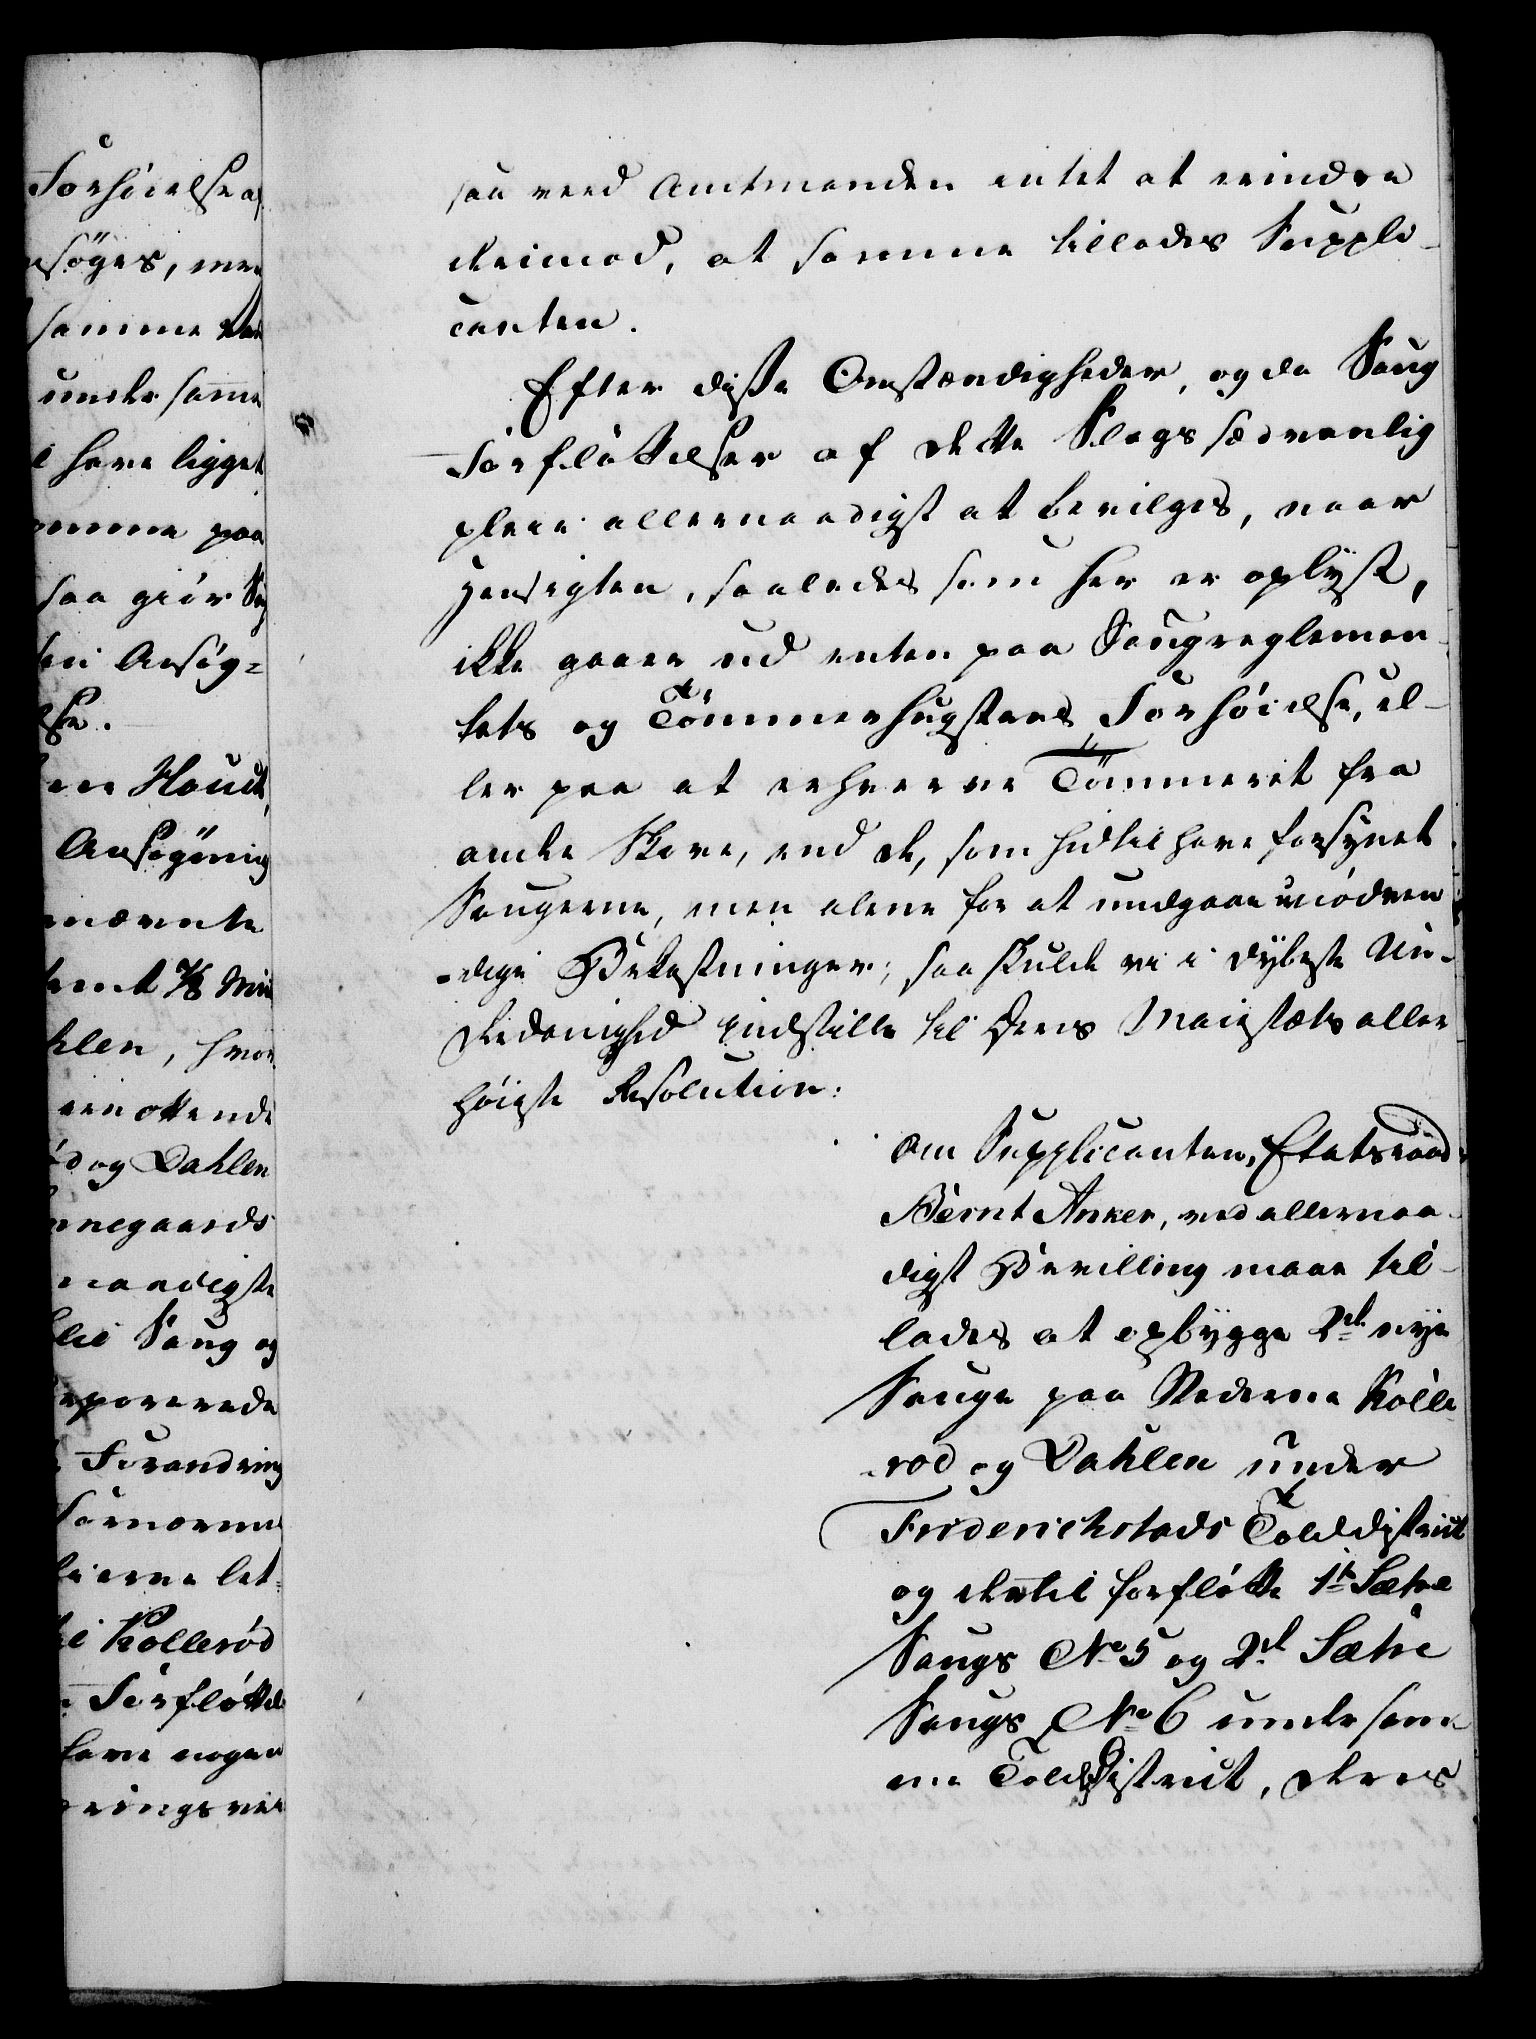 Forhöielse af
söges, men
samme
under same
have ligget
omme paa
saa giör
Ansög=
lse.
Houet,
Ansøgning
nævnte
7/8 Miil
hlen, hvor
een ottende
og Dahlen
negaards
naadigste
Saug og
Forandring
let=
Kollerød
Forfløttel
have nogen
saa veed Amtmanden intet at erindre
derimod, at samme tillades Suppli-
canten.
Efter disse Omstændigheder, og da Saug
Forfløttelser af dette Slags sædvanlig
pleie allernaadigst at bevilges, naar
Hensigten, saaledes som her er oplyst,
ikke gaaer ud enten paa Saugreglemen-
tets og Tømmerhugstens Forhöielse, el-
ler paa at erhverve Tömmeret fra
andre Skove, end de, som hidtil have forsynet
Saugerne, men alene for at undgaae unödven
dige Bekostninger; saa skulde vi i dybeste Un-
derdanighed indstille til Deres Majestæts aller
höieste Resolution:
Om Supplicanten, Etatsraad
Bernt Anker, ved allernaa-
digst Bevilling maae til-
lades at opbygge 2de nye
Sauge paa Stederne Kolle
rød og Dahlen under
Friderichstads Tolddistrict
og dertil forfløtte 1te Sætre
Saugs No 5 og 2de Sætre
Saugs No 6 under sam-
me Told District, deres